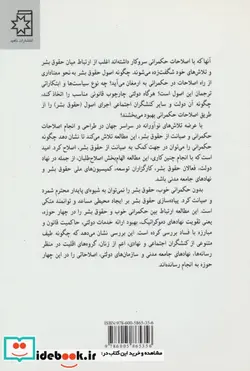 انتشارات ناهید
آنها که با اصلاحات حکمرانی سروکار داشته‌اند اغلب از ارتباط میان حقوق بشر
و تلاش‌های خود شگفت‌زده می‌شوند. چگونه اصول حقوق بشر به نحو معناداری
از راه اصلاحات در حکمرانی به ارمغان می‌آید؟ چه نوع سیاست‌ها و ابتکاراتی
ترجمان این اصول است؟ هرگاه دولتی چارچوب قانونی مناسب را اتخاذ کند،
چگونه آن دولت و سایر کنشگران اجتماعی اجرای اصول (حقوق بشر) را از
طریق اصلاحات حکمرانی بهبود می‌بخشند؟
با عرضه تلاش‌های نوآورانه در سراسر جهان در طراحی و انجام اصلاحات
حکمرانی و صیانت از حقوق بشر، این مطالعه نشان می‌دهد که چگونه می‌توان
حکمرانی را در جهت کمک به صیانت از حقوق بشر، اصلاح کرد. امید
است که با انجام چنین کاری، این مطالعه الهام‌بخش اصلاح‌طلبان، از جمله در نهاد
دولت، فعالان حقوق بشر، کارگزاران توسعه، کمیسیون‌های ملی حقوق بشر و
نهادهای جامعه مدنی باشد.
بدون حکمرانی خوب، حقوق بشر را نمی‌توان به شیوه‌ای پایدار محترم شمرد
و صیانت کرد. پیاده‌سازی حقوق بشر بر ایجاد محیطی مساعد و توانمند متکی
است. این مطالعه ارتباط بین حکمرانی خوب و حقوق بشر را در چهار حوزه،
یعنی تقویت نهادهای دموکراتیک، بهبود ارائه خدمات دولتی، حاکمیت قانون و
مبارزه با فساد بررسی کرده است. این بررسی نشان می‌دهد که چگونه طیف
متنوعی از کنشگران اجتماعی و نهادی، اعم از زنان، گروه‌های اقلیت در منظر
رسانه‌ها، نهادهای جامعه مدنی و سازمان‌های دولتی، اصلاحاتی را در این چهار
حوزه به انجام رسانده‌اند.
ISBN: 978-600-5865-35-6
9 786005 865356
خرید و قیمت این کتاب در: